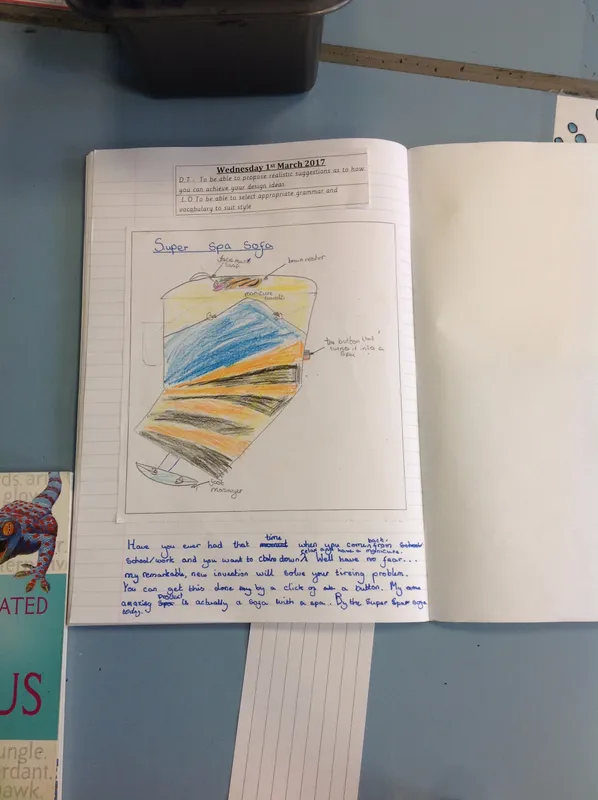 Wednesday 1st March 2017
D.T.: To be able to propose realistic suggestions as to how
you can achieve your design ideas
L.O To be able to select appropriate grammar and
vocabulary to suit style
Super Spa Sofa
face mask
soap
brain reader
manicure
the button that
turnes it into a
spa
foot
massager
Have you ever had that time when you come back from
School/work and you want to calm down relax and have a manicure. Well have no fear...
my remarkable, new invention will solve your tireing problem.
You can get this done by a click of a button. My
amazing product is actually a sofa with a spa. By the Super Spa Sofa
today.
ds. are
glov
ATED
US
ungle.
rdant.
awk.